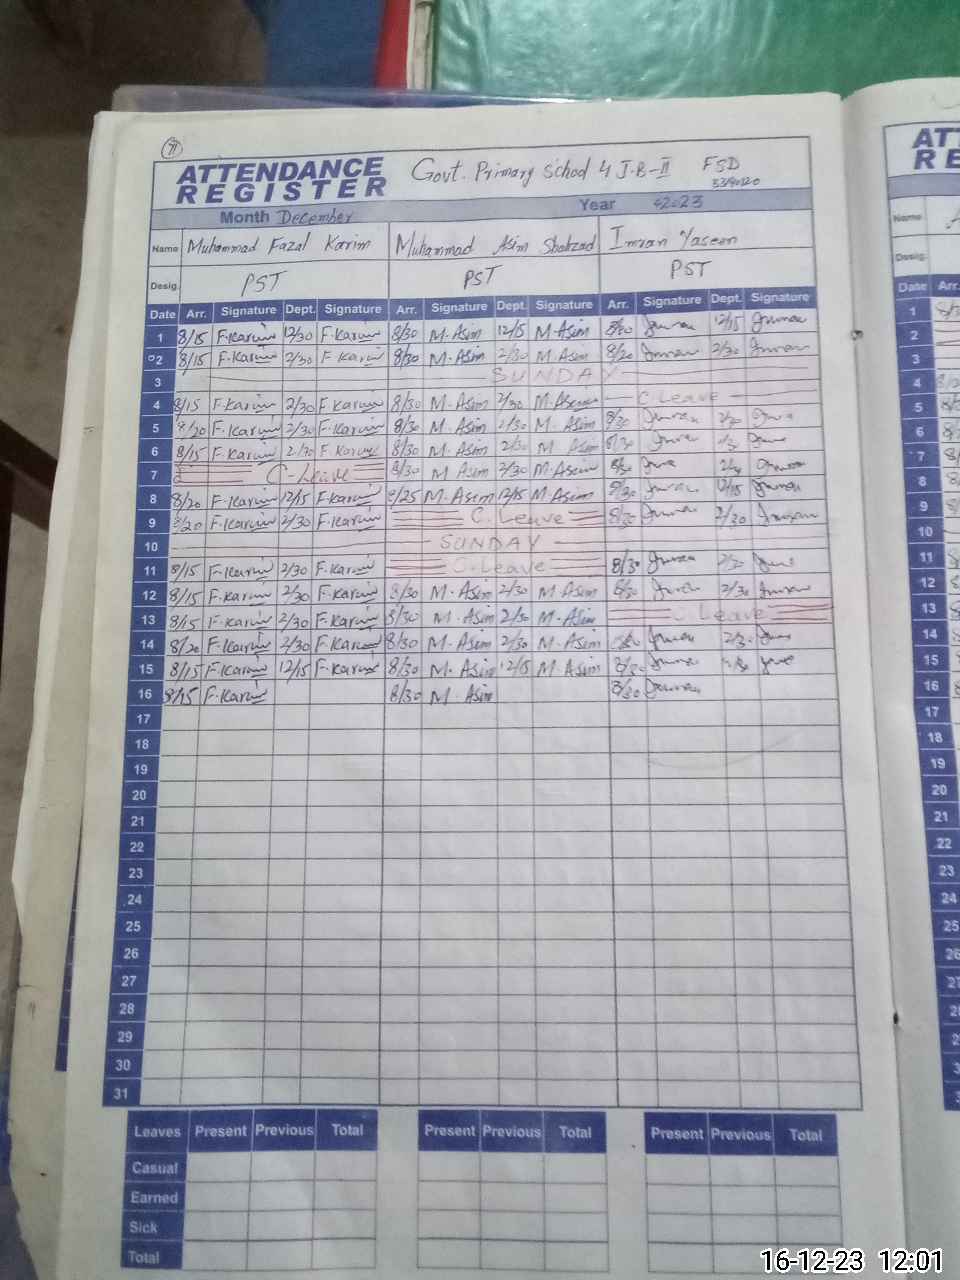 71
ATTENDANCE
REGISTER
Govt. Primary School 4 J.B-II FSD
Month December Year 2023
Name Muhammad Fazal Karim Muhammad Asim Shahzad Imran Yaseen
Desig. PST PST PST
Date Arr. Signature Dept. Signature Arr. Signature Dept. Signature Arr. Signature Dept. Signature
1 8/15 F.Karim 12/30 F.Karim 8/30 M.Asim 12/15 M.Asim 12/15
2 8/15 F.Karim 2/30 F.Karim 8/30 M.Asim 2/30 M.Asim 8/20 2/30
3 SUNDAY
4 8/15 F.Karim 2/30 F.Karim 8/30 M.Asim 2/30 M.Asim C.Leave
5 8/20 F.Karim 2/30 F.Karim 8/30 M.Asim 2/30 M.Asim 8/30
6 8/15 F.Karim 2/30 F.Karim 8/30 M.Asim 2/30 M Asim 8/30
7 C-Leave 8/30 M Asim 2/30 M.Asim
8 8/20 F.Karim 12/15 F.Karim 8/25 M.Asim 12/15 M Asim 12/15
9 8/20 F.Karim 2/30 F.Karim C.Leave 8/30 2/30
10 SUNDAY
11 8/15 F.Karim 2/30 F.Karim C.Leave 8/30
12 8/15 F.Karim 2/30 F.Karim 8/30 M.Asim 2/30 M.Asim 2/30
13 8/15 F.Karim 2/30 F.Karim 8/30 M.Asim 2/30 M.Asim C.Leave
14 8/20 F.Karim 2/30 F.Karim 8/30 M.Asim 2/30 M.Asim
15 8/15 F.Karim 12/15 F.Karim 8/30 M.Asim 12/15 M Asim 8/30
16 8/15 F.Karim 8/30 M.Asim 8/30
17
18
19
20
21
22
23
24
25
26
27
28
29
30
31
Leaves Present Previous Total Present Previous Total Present Previous Total
Casual
Earned
Sick
Total
Name
Desig.
Date Arr.
1
2
3
4
5
6
7
8
9
10
11
12
13
14
15
16
17
18
19
20
21
22
23
24
25
16-12-23 12:01